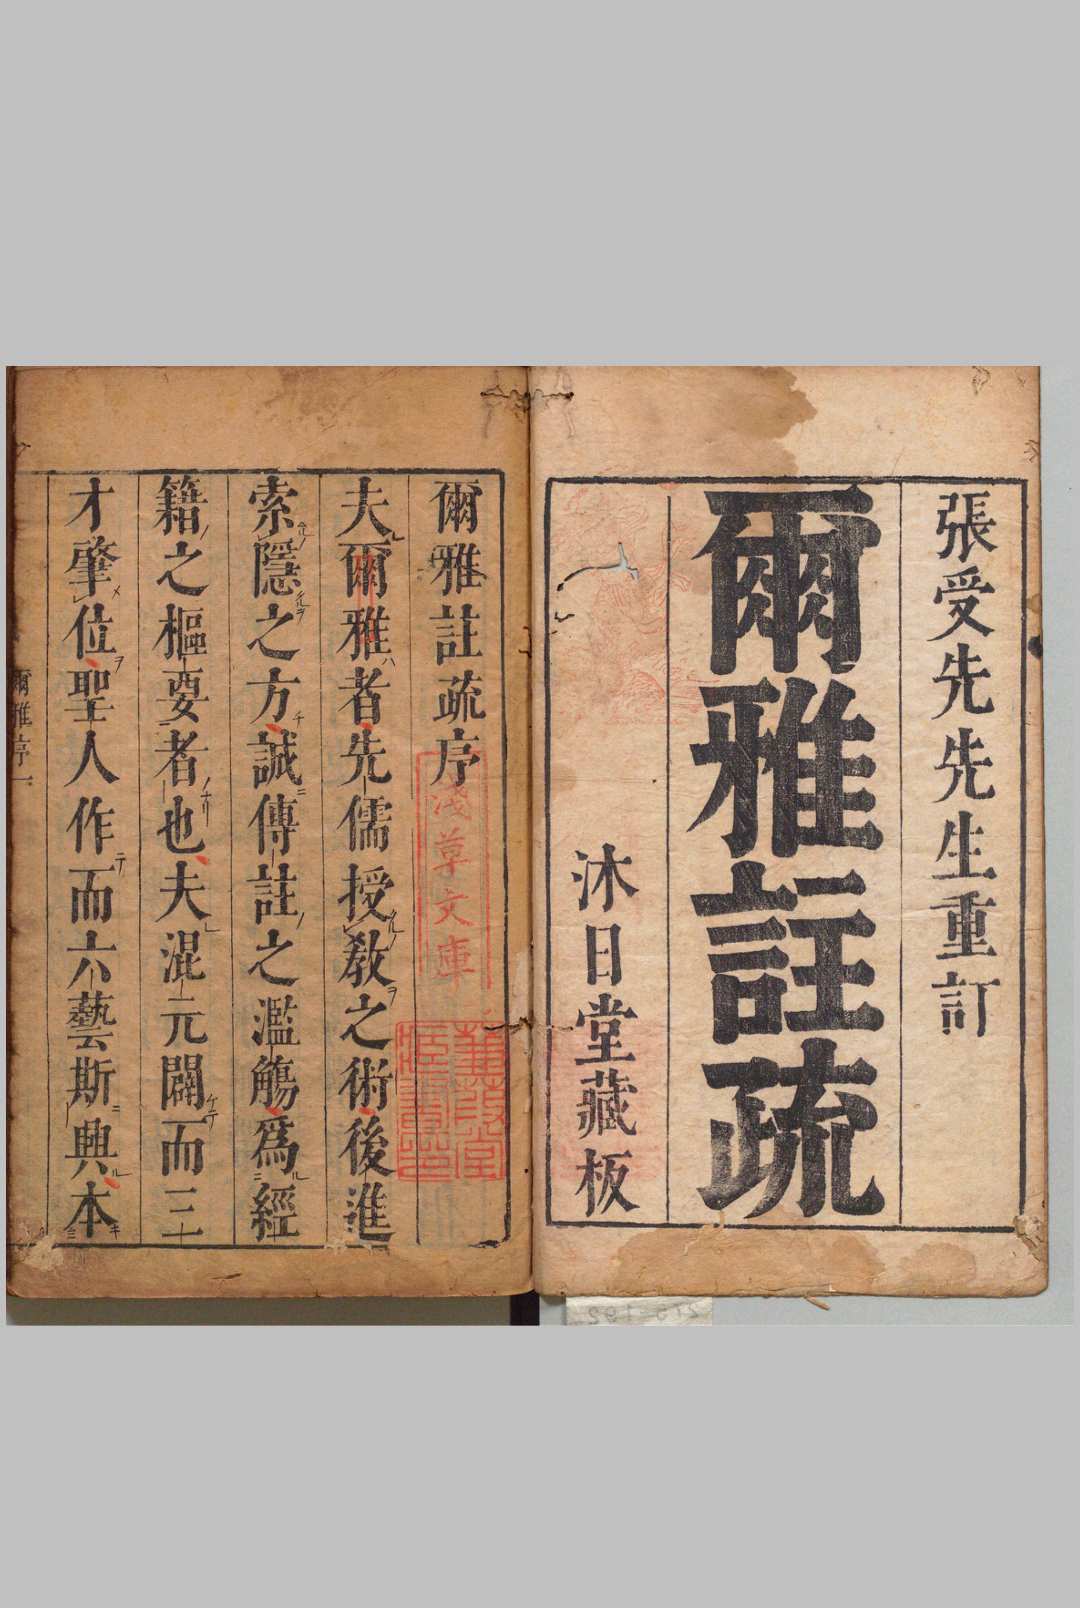 張受先先生重訂
爾雅註疏
沐日堂藏板
爾雅註疏序
淺草文庫
夫爾雅者先儒授教之術後進
索隱之方誠傳註之濫觴爲經
籍之樞要者也夫混元闢而三
才肇位聖人作而六藝斯興本
爾雅序一